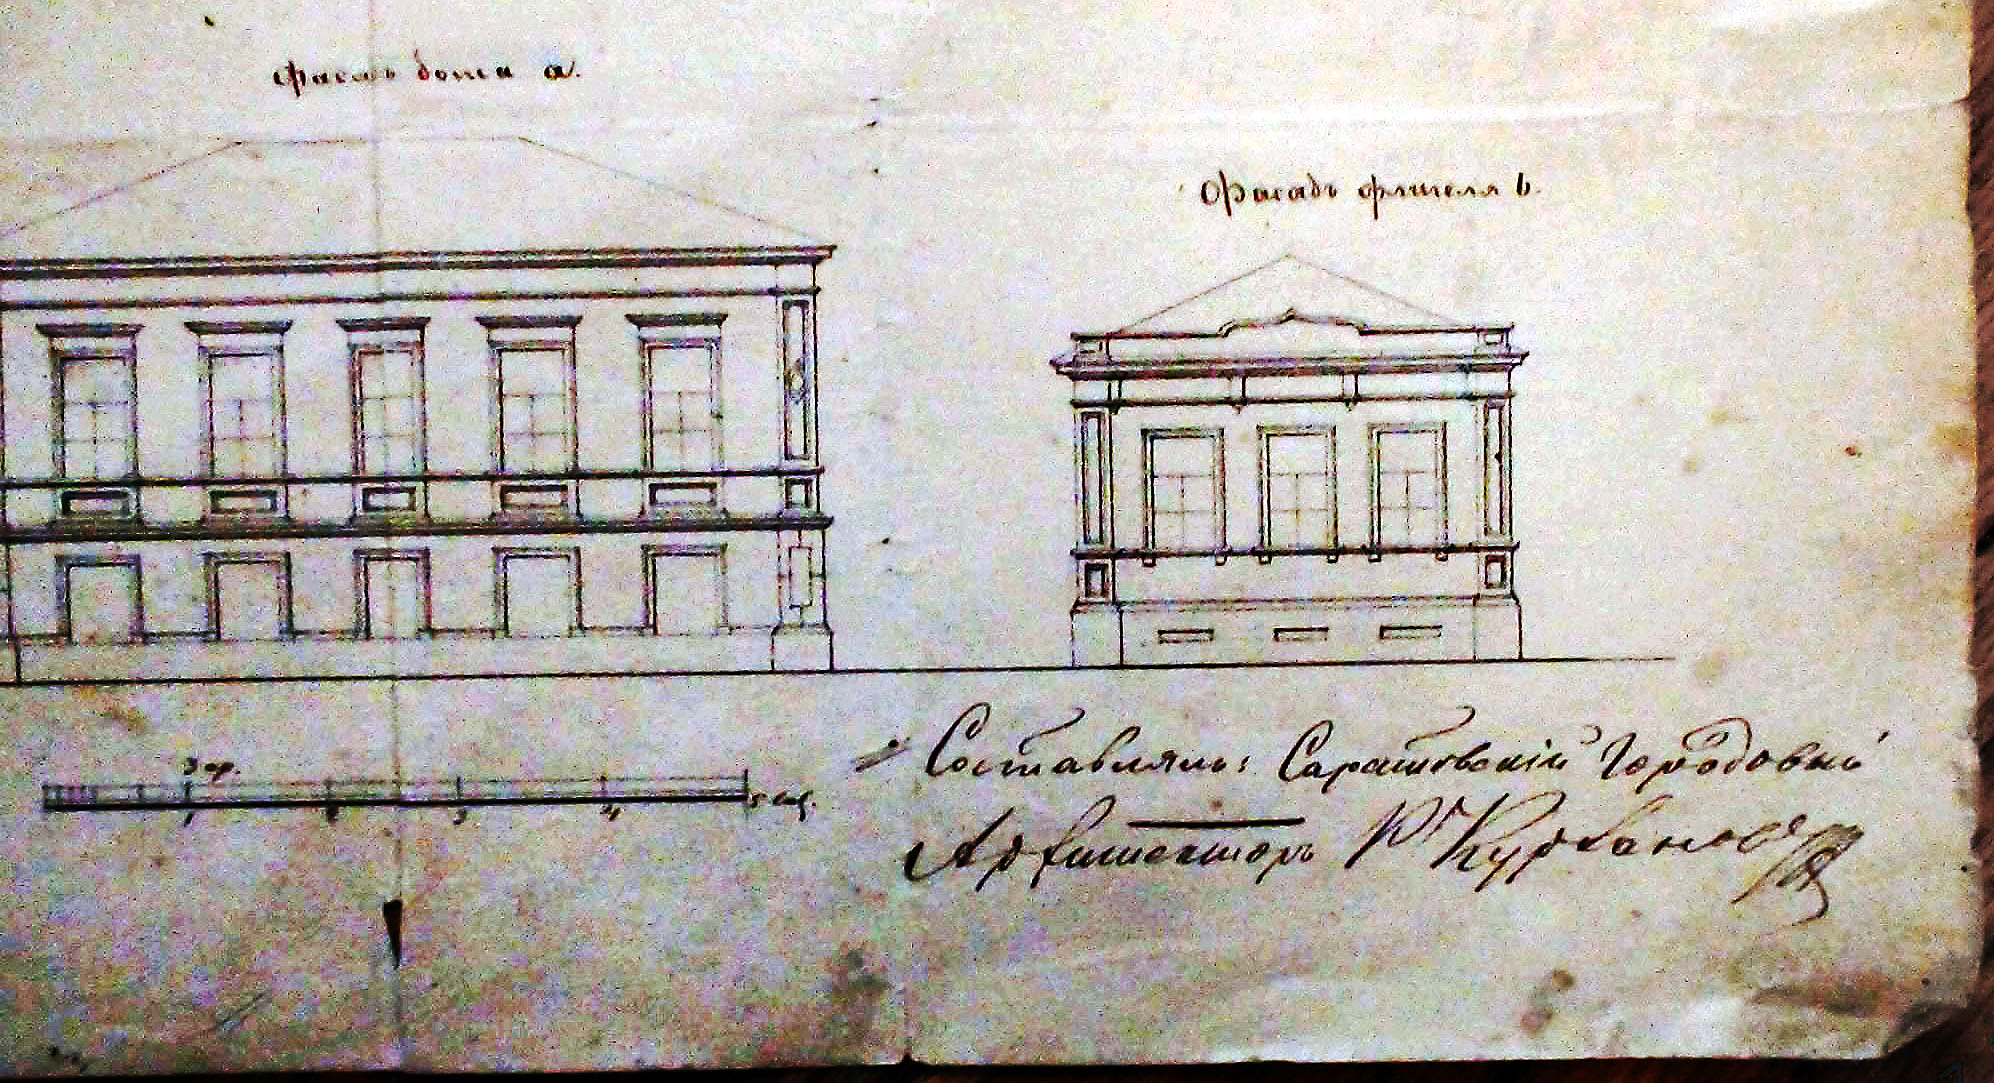 Фасадъ дома а.
Фасадъ флигеля b.
3 ар.
1 2 3 4 5 саж.
Составлялъ: Саратовскій Городовый
Архитекторъ